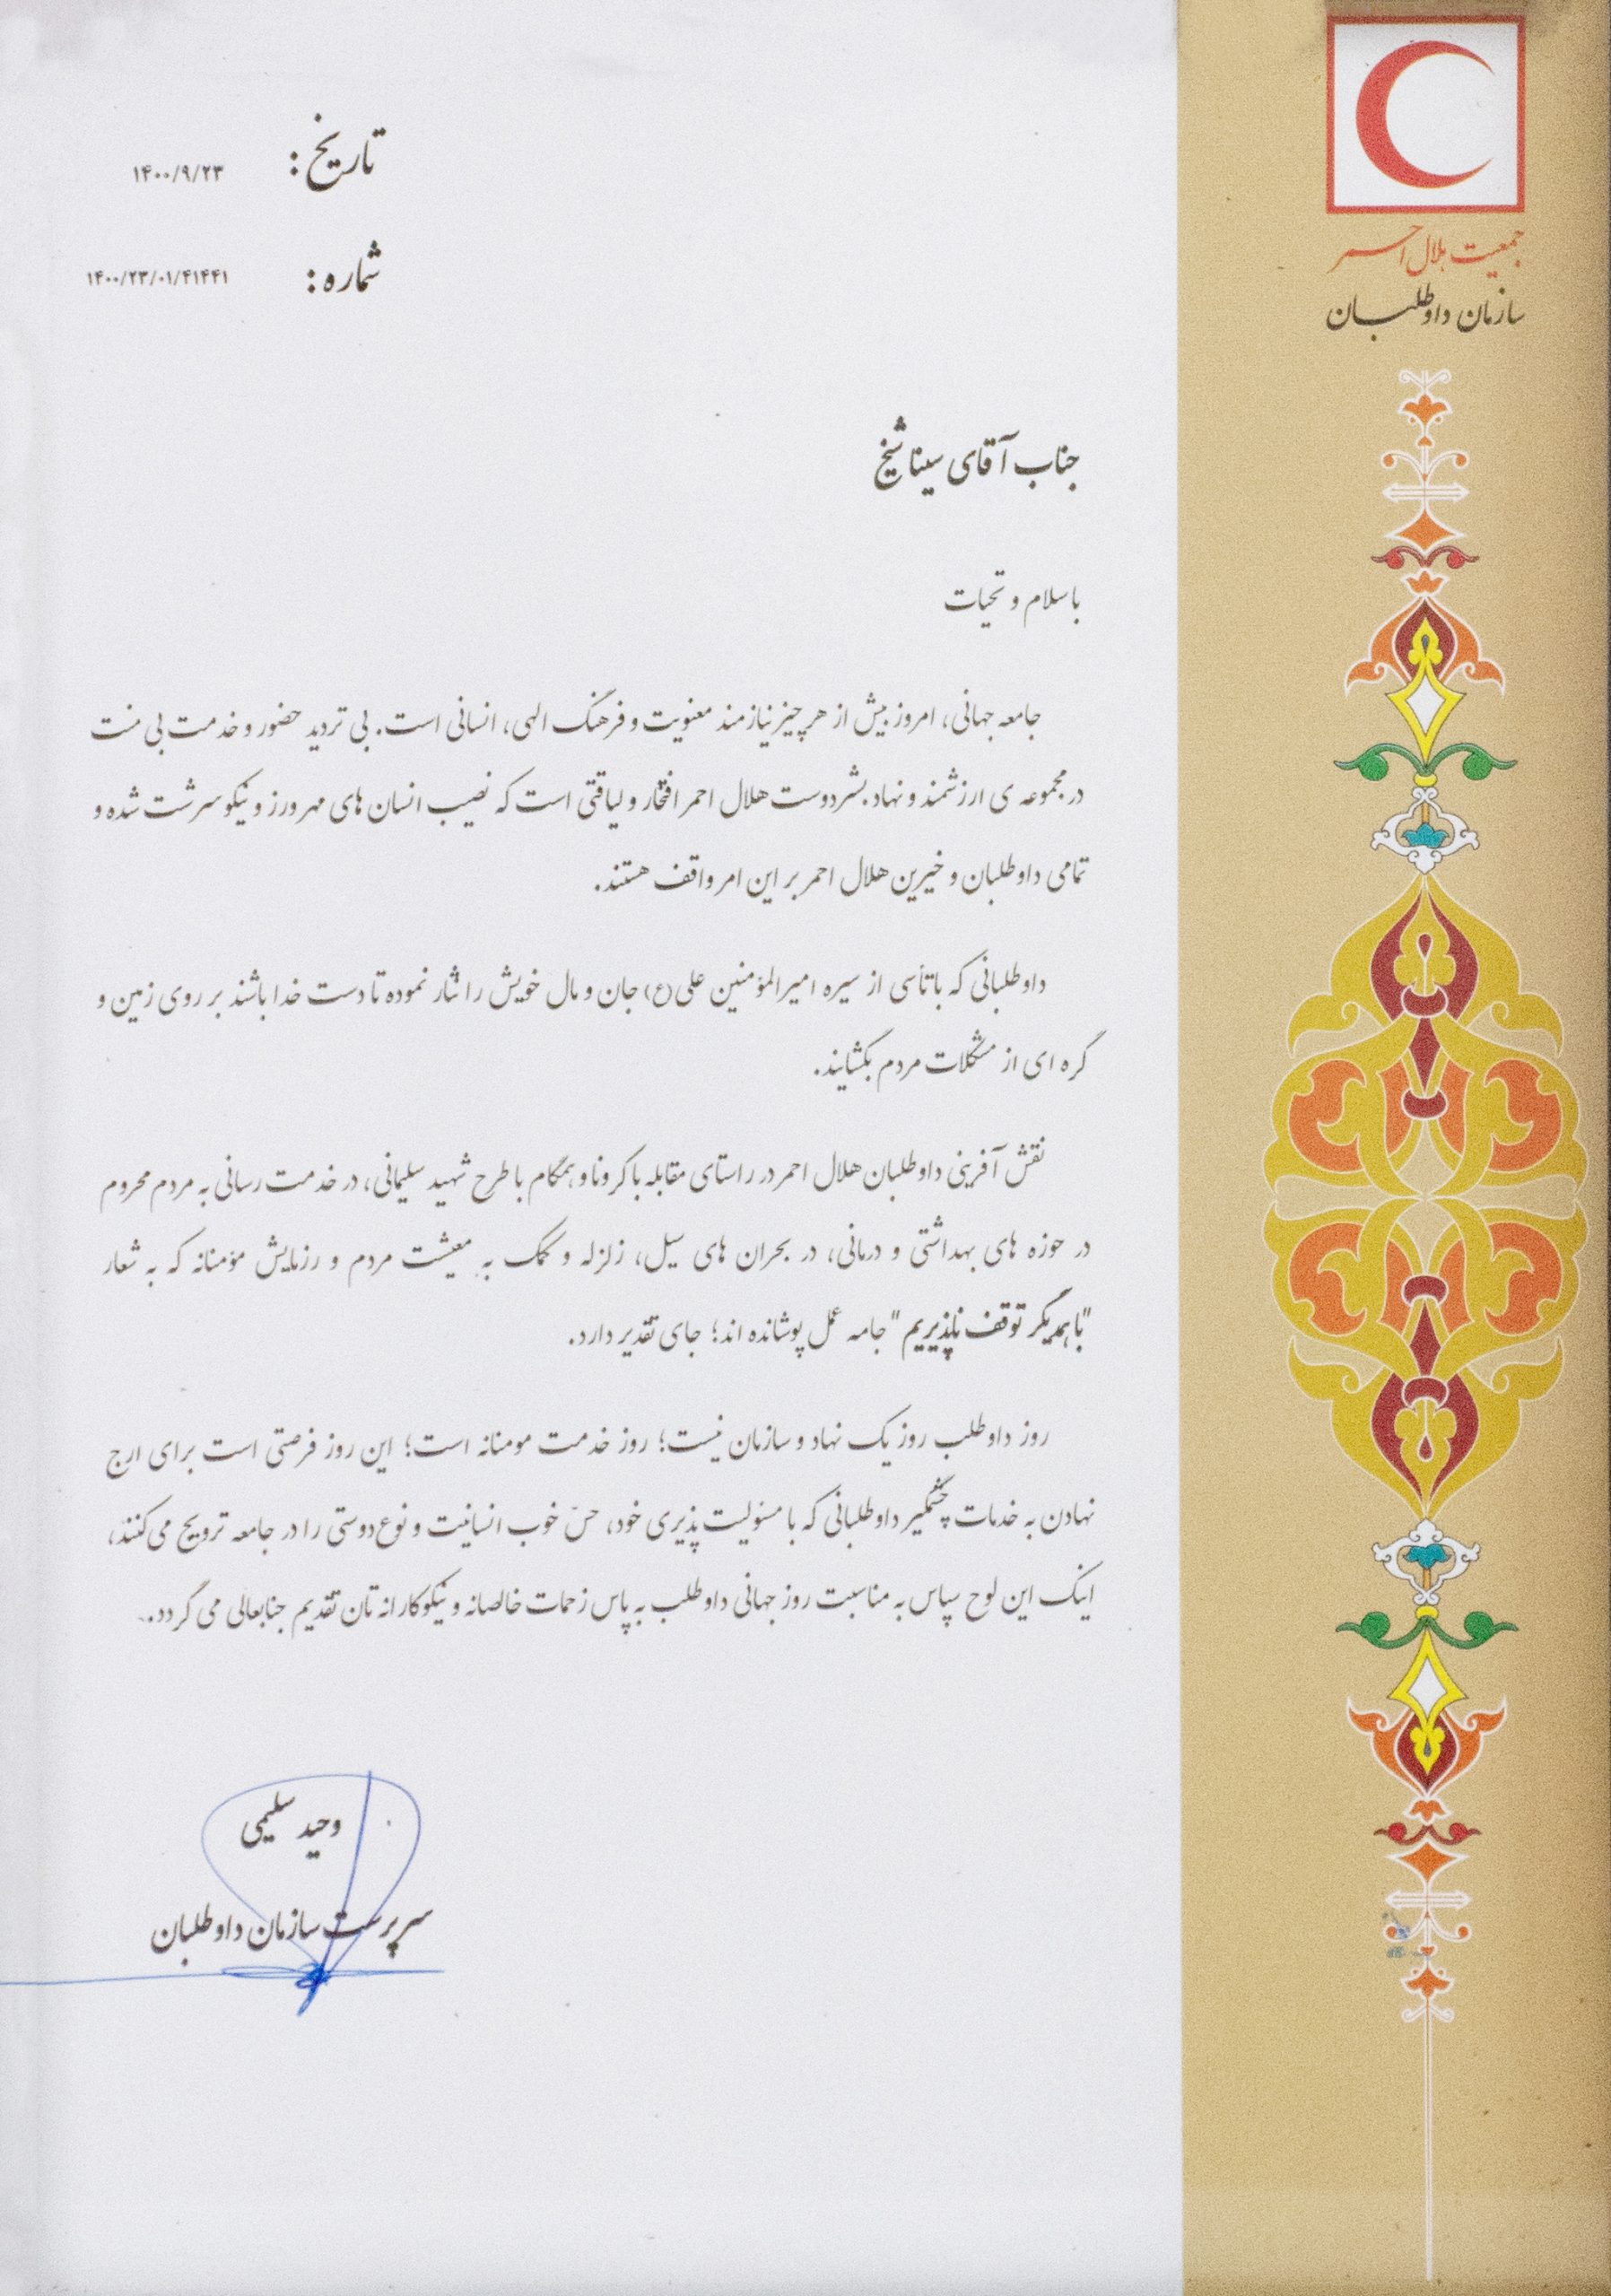 جمعیت هلال احمر
سازمان داوطلبان
تاریخ: ۱۴۰۰/۹/۲۳
شماره: ۱۴۰۰/۲۳/۰۱/۴۱۴۴۱
جناب آقای سینا شیخ
با سلام و تحیات
جامعه جهانی، امروز بیش از هر چیز نیازمند معنویت و فرهنگ الهی، انسانی است. بی تردید حضور و خدمت بی منت
در مجموعه ی ارزشمند و نهاد بشردوست هلال احمر افتخار و لیاقتی است که نصیب انسان های مهرورز و نیکو سرشت شده و
تمامی داوطلبان و خیرین هلال احمر بر این امر واقف هستند.
داوطلبانی که با تأسی از سیره امیرالمؤمنین علی(ع) جان و مال خویش را نثار نموده تا دست خدا باشند بر روی زمین و
گره ای از مشکلات مردم بگشایند.
نقش آفرینی داوطلبان هلال احمر در راستای مقابله با کرونا و همگام با طرح شهید سلیمانی، در خدمت رسانی به مردم محروم
در حوزه های بهداشتی و درمانی، در بحران های سیل، زلزله و کمک به معیشت مردم و رزمایش مؤمنانه که به شعار
"با همدیگر توقف ناپذیریم" جامه عمل پوشانده اند؛ جای تقدیر دارد.
روز داوطلب روز یک نهاد و سازمان نیست؛ روز خدمت مومنانه است؛ این روز فرصتی است برای ارج
نهادن به خدمات چشمگیر داوطلبانی که با مسئولیت پذیری خود، حسّ خوب انسانیت و نوع دوستی را در جامعه ترویج می کنند،
اینک این لوح سپاس به مناسبت روز جهانی داوطلب به پاس زحمات خالصانه و نیکوکارانه تان تقدیم جنابعالی می گردد.
وحید سلیمی
سرپرست سازمان داوطلبان